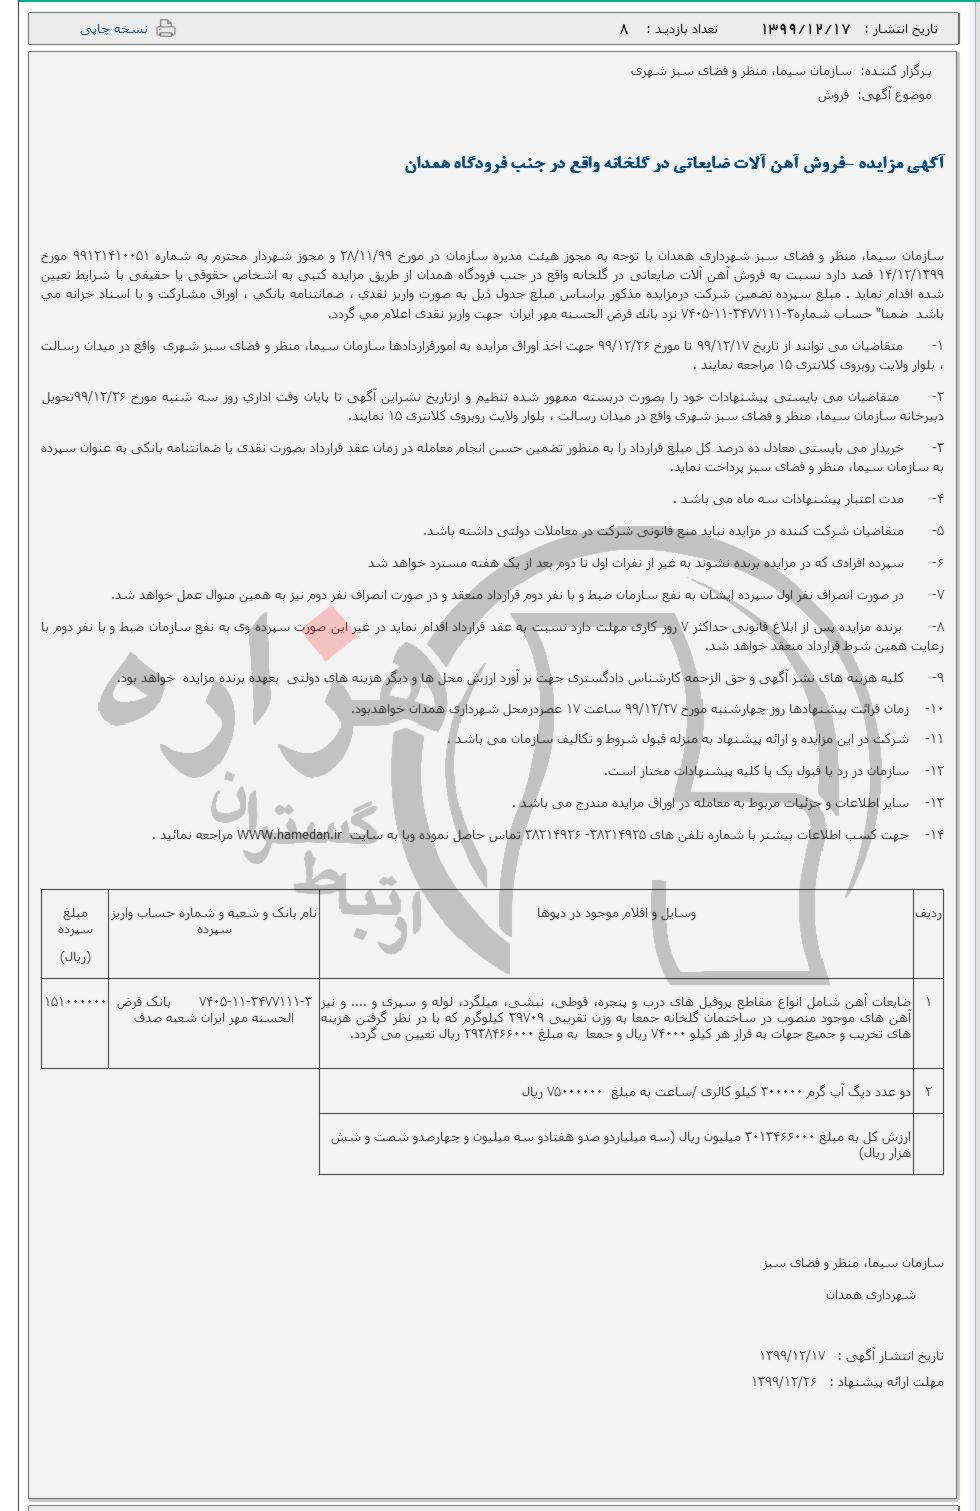 تاریخ انتشار : ۱۳۹۹/۱۲/۱۷ تعداد بازدید : ۸ نسخه چاپی
برگزار کننده: سازمان سیما، منظر و فضای سبز شهری
موضوع آگهی: فروش
آگهی مزایده –فروش آهن آلات ضایعاتی در گلخانه واقع در جنب فرودگاه همدان
سازمان سیما، منظر و فضای سبز شهرداری همدان با توجه به مجوز هیئت مدیره سازمان در مورخ ۲۸/۱۱/۹۹ و مجوز شهردار محترم به شماره ۹۹۱۲۱۴۱۰۰۵۱ مورخ
۱۴/۱۲/۱۳۹۹ قصد دارد نسبت به فروش آهن آلات ضایعاتی در گلخانه واقع در جنب فرودگاه همدان از طریق مزایده کتبی به اشخاص حقوقی یا حقیقی با شرایط تعیین
شده اقدام نماید . مبلغ سپرده تضمین شرکت درمزایده مذکور براساس مبلغ جدول ذیل به صورت واریز نقدي ، ضمانتنامه بانكي ، اوراق مشاركت و یا اسناد خزانه مي
باشد ضمنا" حساب شماره۳-۳۴۷۷۱۱۱-۱۱-۷۴۰۵ نزد بانك قرض الحسنه مهر ایران جهت واریز نقدی اعلام مي گردد.
۱- متقاضیان می توانند از تاریخ ۹۹/۱۲/۱۷ تا مورخ ۹۹/۱۲/۲۶ جهت اخذ اوراق مزایده به امورقراردادها سازمان سیما، منظر و فضای سبز شهری واقع در میدان رسالت
، بلوار ولایت روبروی کلانتری ۱۵ مراجعه نمایند .
۲- متقاضیان می بایستی پیشنهادات خود را بصورت دربسته ممهور شده تنظیم و ازتاریخ نشراین آگهی تا پایان وقت اداري روز سه شنبه مورخ ۹۹/۱۲/۲۶تحویل
دبیرخانه سازمان سیما، منظر و فضای سبز شهری واقع در میدان رسالت ، بلوار ولایت روبروی کلانتری ۱۵ نمایند.
۳- خریدار می بایستی معادل ده درصد کل مبلغ قرارداد را به منظور تضمین حسن انجام معامله در زمان عقد قرارداد بصورت نقدی یا ضمانتنامه بانکی به عنوان سپرده
به سازمان سیما، منظر و فضای سبز پرداخت نماید.
۴- مدت اعتبار پیشنهادات سه ماه می باشد .
۵- متقاضیان شرکت کننده در مزایده نباید منع قانونی شرکت در معاملات دولتی داشته باشد.
۶- سپرده افرادی که در مزایده برنده نشوند به غیر از نفرات اول تا دوم بعد از یک هفته مسترد خواهد شد
۷- در صورت انصراف نفر اول سپرده ایشان به نفع سازمان ضبط و با نفر دوم قرارداد منعقد و در صورت انصراف نفر دوم نیز به همین منوال عمل خواهد شد.
۸- برنده مزایده پس از ابلاغ قانونی حداکثر ۷ روز کاری مهلت دارد نسبت به عقد قرارداد اقدام نماید در غیر این صورت سپرده وی به نفع سازمان ضبط و با نفر دوم با
رعایت همین شرط قرارداد منعقد خواهد شد.
۹- کلیه هزینه های نشر آگهی و حق الزحمه کارشناس دادگستری جهت بر آورد ارزش محل ها و دیگر هزینه های دولتی بعهده برنده مزایده خواهد بود.
۱۰- زمان قرائت پیشنهادها روز چهارشنبه مورخ ۹۹/۱۲/۲۷ ساعت ۱۷ عصردرمحل شهرداری همدان خواهدبود.
۱۱- شرکت در این مزایده و ارائه پیشنهاد به منزله قبول شروط و تکالیف سازمان می باشد .
۱۲- سازمان در رد یا قبول یک یا کلیه پیشنهادات مختار است.
۱۳- سایر اطلاعات و جزئیات مربوط به معامله در اوراق مزایده مندرج می باشد .
۱۴- جهت کسب اطلاعات بیشتر با شماره تلفن های ۳۸۲۱۴۹۲۵- ۳۸۲۱۴۹۲۶ تماس حاصل نموده ویا به سایت WWW.hamedan.ir مراجعه نمائید .
هزاره
گستران
ارتباط
ردیف وسایل و اقلام موجود در دپوها نام بانک و شعبه و شماره حساب واریز مبلغ
سپرده سپرده
(ریال)
۱ ضایعات آهن شامل انواع مقاطع پروفیل های درب و پنجره، قوطی، نبشی، میلگرد، لوله و سپری و .... و نیز ۳-۳۴۷۷۱۱۱-۱۱-۷۴۰۵ بانک قرض ۱۵۱۰۰۰۰۰۰
آهن های موجود منصوب در ساختمان گلخانه جمعا به وزن تقریبی ۳۹۷۰۹ کیلوگرم که با در نظر گرفتن هزینه الحسنه مهر ایران شعبه صدف
های تخریب و جمیع جهات به قرار هر کیلو ۷۴۰۰۰ ریال و جمعا به مبلغ ۲۹۳۸۴۶۶۰۰۰ ریال تعیین می گردد.
۲ دو عدد دیگ آب گرم ۳۰۰۰۰۰ کیلو کالری /ساعت به مبلغ ۷۵۰۰۰۰۰۰ ریال
ارزش کل به مبلغ ۳۰۱۳۴۶۶۰۰۰ میلیون ریال (سه میلیاردو صدو هفتادو سه میلیون و چهارصدو شصت و شش
هزار ریال)
سازمان سیما، منظر و فضای سبز
شهرداری همدان
تاریخ انتشار آگهی : ۱۳۹۹/۱۲/۱۷
مهلت ارائه پیشنهاد : ۱۳۹۹/۱۲/۲۶